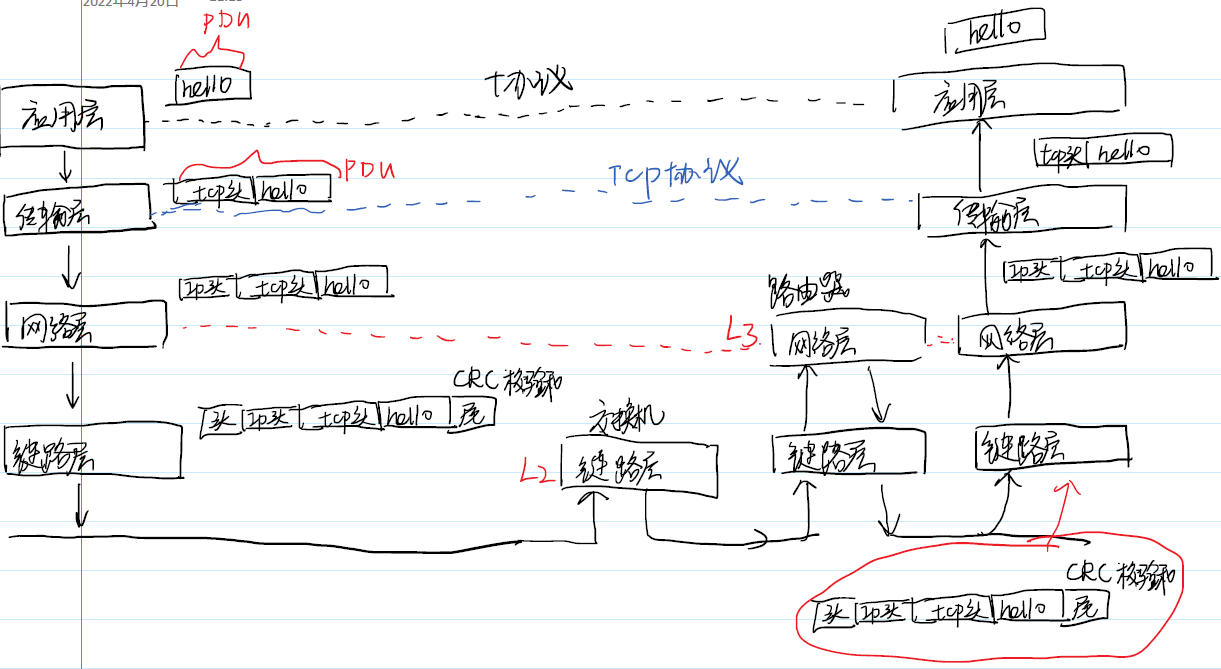 2022年4月20日
PDU
hello
hello
协议
应用层
应用层
tcp头 hello
PDU
tcp头 hello
TCP协议
传输层
传输层
IP头 tcp头 hello
IP头 tcp头 hello
路由器
网络层
L3
网络层
网络层
CRC校验和
头 IP头 tcp头 hello 尾
交换机
链路层
L2
链路层
链路层
链路层
CRC校验和
头 IP头 tcp头 hello 尾